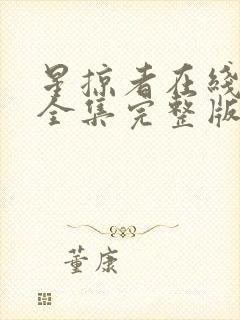 星掠者在线
全集完整版
董康